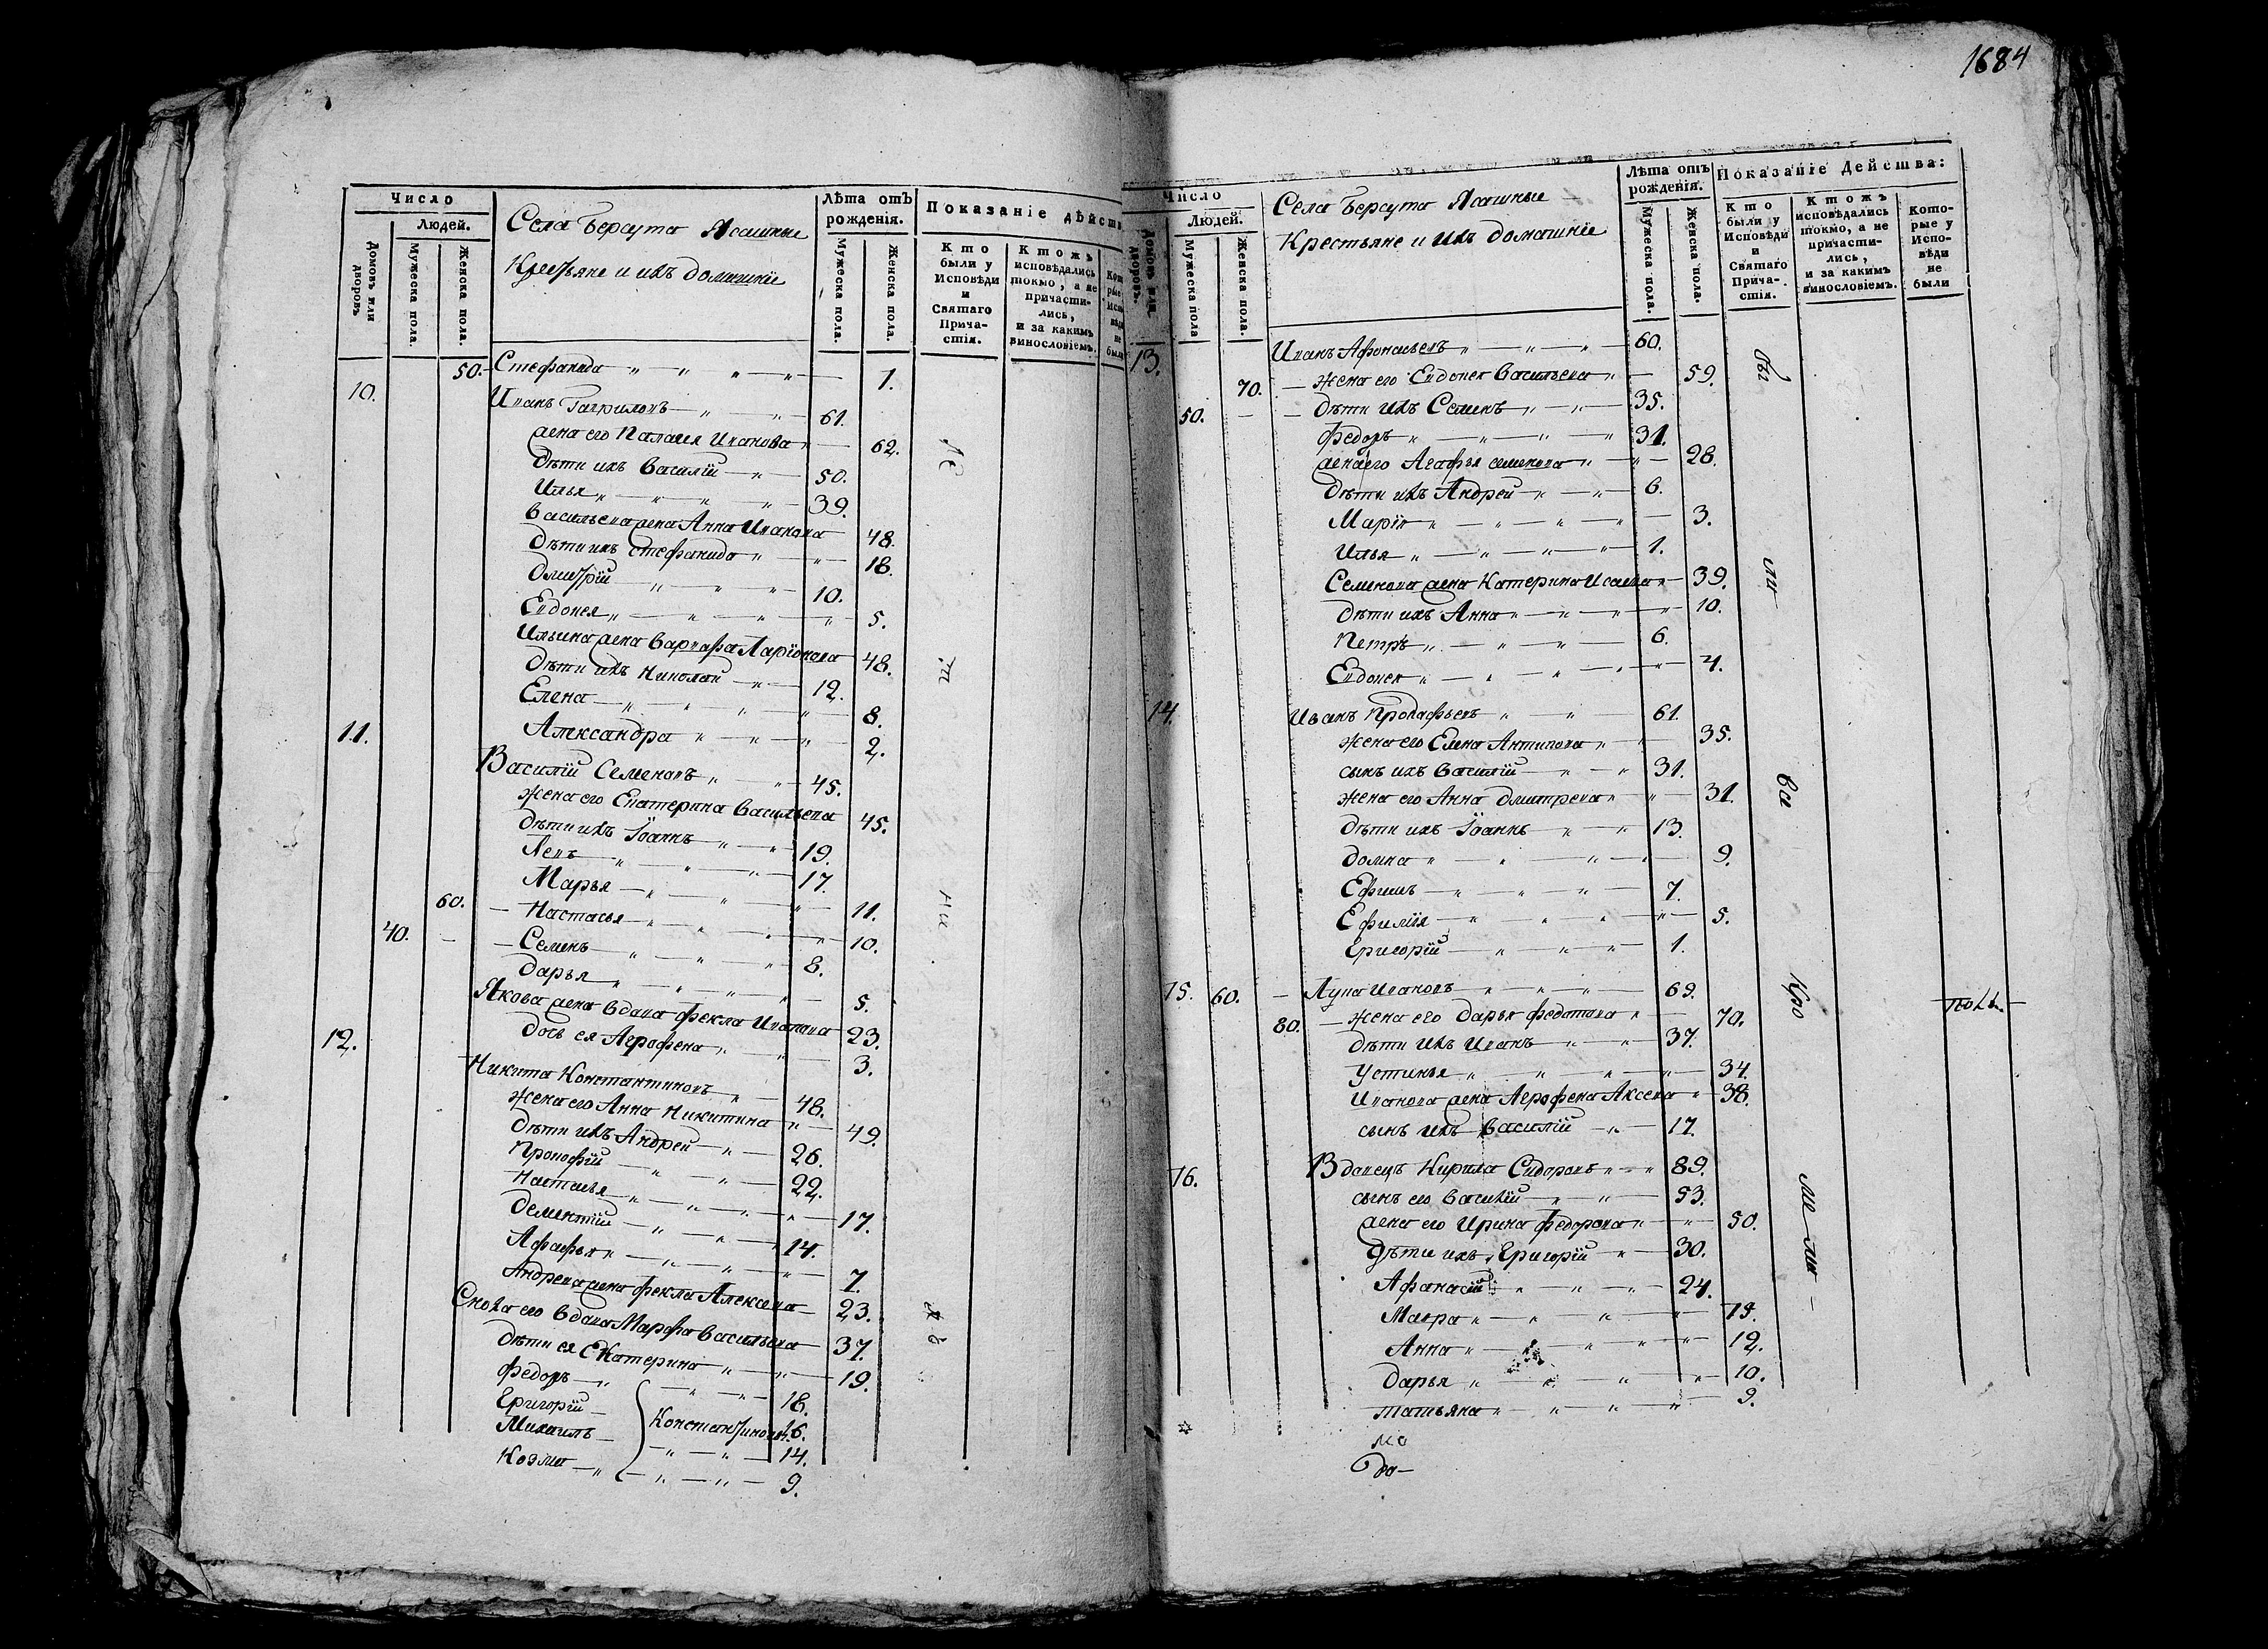 1684
Число
Людей.
Домовъ или дворовъ
Мужеска пола.
Женска пола.
Села Берсута Ясашные
Крестьяне и ихъ домашнїе
Лѣта отъ рожденія.
Мужеска пола.
Женска пола.
Показаніе дѣйств
Кто были у Исповѣди и Святаго Причастія.
Ктожъ исповѣдались токмо, а не причастились, и за какимъ винословіемъ.
50. Стефанида 1.
10. Иванъ Гавриловъ 61.
жена его Палагея Иванова 62.
дѣти ихъ Василїй 50.
Илья 39.
Васильева жена Анна Иванова 48.
дѣти ихъ Стефанида 18.
Дмитрїй 10.
Евдокея 5.
Ильина жена Варвара Ларїонова 48.
дѣти ихъ Николай 12.
Елена 8.
Александра 2.
11. Василїй Семеновъ 45.
жена его Екатерина Васильева 45.
дѣти ихъ Їоаннъ 19.
Левъ 17.
Марья 11.
60. Настасья 10.
40. Семенъ 8.
Дарья 5.
Якова жена вдова Фекла Иванова 23.
дочь ея Агрофена 3.
12. Никита Константиновъ 48.
жена его Анна Никитина 49.
дѣти ихъ Андрей 26.
Прокофїй 22.
Настасья 17.
Дементїй 14.
Агафья 7.
Андреева жена Фекла Алексева 23.
Сноха его вдова Марфа Васильева 37.
дѣти ея Екатерина 19.
Федоръ 18.
Григорїй Константиновы 16.
Михаилъ 14.
Козма 9.
Число
Людей.
Домовъ или дворовъ.
Мужеска пола
Женска пола.
Села Берсута Ясашные
Крестьяне и ихъ домашнїе
Лѣта отъ рожденія.
Мужеска пола.
Женска пола.
Показаніе Действа:
Кто были у Исповѣди и Святаго Причастія.
Ктожъ исповѣдались токмо, а не причастились, и за какимъ винословіемъ.
Которые у Исповѣди не были
13. Иванъ Афонасьевъ 60.
70. жена его Евдокея Васильева 59.
50. дѣти ихъ Семенъ 35.
Федоръ 31.
жена его Агафья Семенова 28.
дѣти ихъ Андрей 6.
Марїя 3.
Илья 1.
Семенова жена Катерина Исаева 39.
дѣти ихъ Анна 10.
Петръ 6.
Евдокея 4.
14. Иванъ Прокафьевъ 61.
жена его Елена Антипова 35.
сынъ ихъ Василїй 31.
жена его Анна Дмитрева 31.
дѣти ихъ Їоаннъ 13.
Домна 9.
Ефимъ 7.
Ефимїя 5.
Григорїй 1.
15. 60. Лука Ивановъ 69.
80. жена его Дарья Федотова 70.
дѣти ихъ Иванъ 37.
Устинья 34.
Иванова жена Агрофена Аксева 38.
сынъ ихъ Василїй 17.
16. Вдовецъ Кирила Сидоровъ 89.
сынъ его Василїй 53.
жена его Ирина Федорова 50.
дѣти ихъ Григорїй 30.
Афанасїй 24.
Мавра 19.
Анна 12.
Дарья 10.
Татьяна 9.
бы
ли
все
Кро
ме